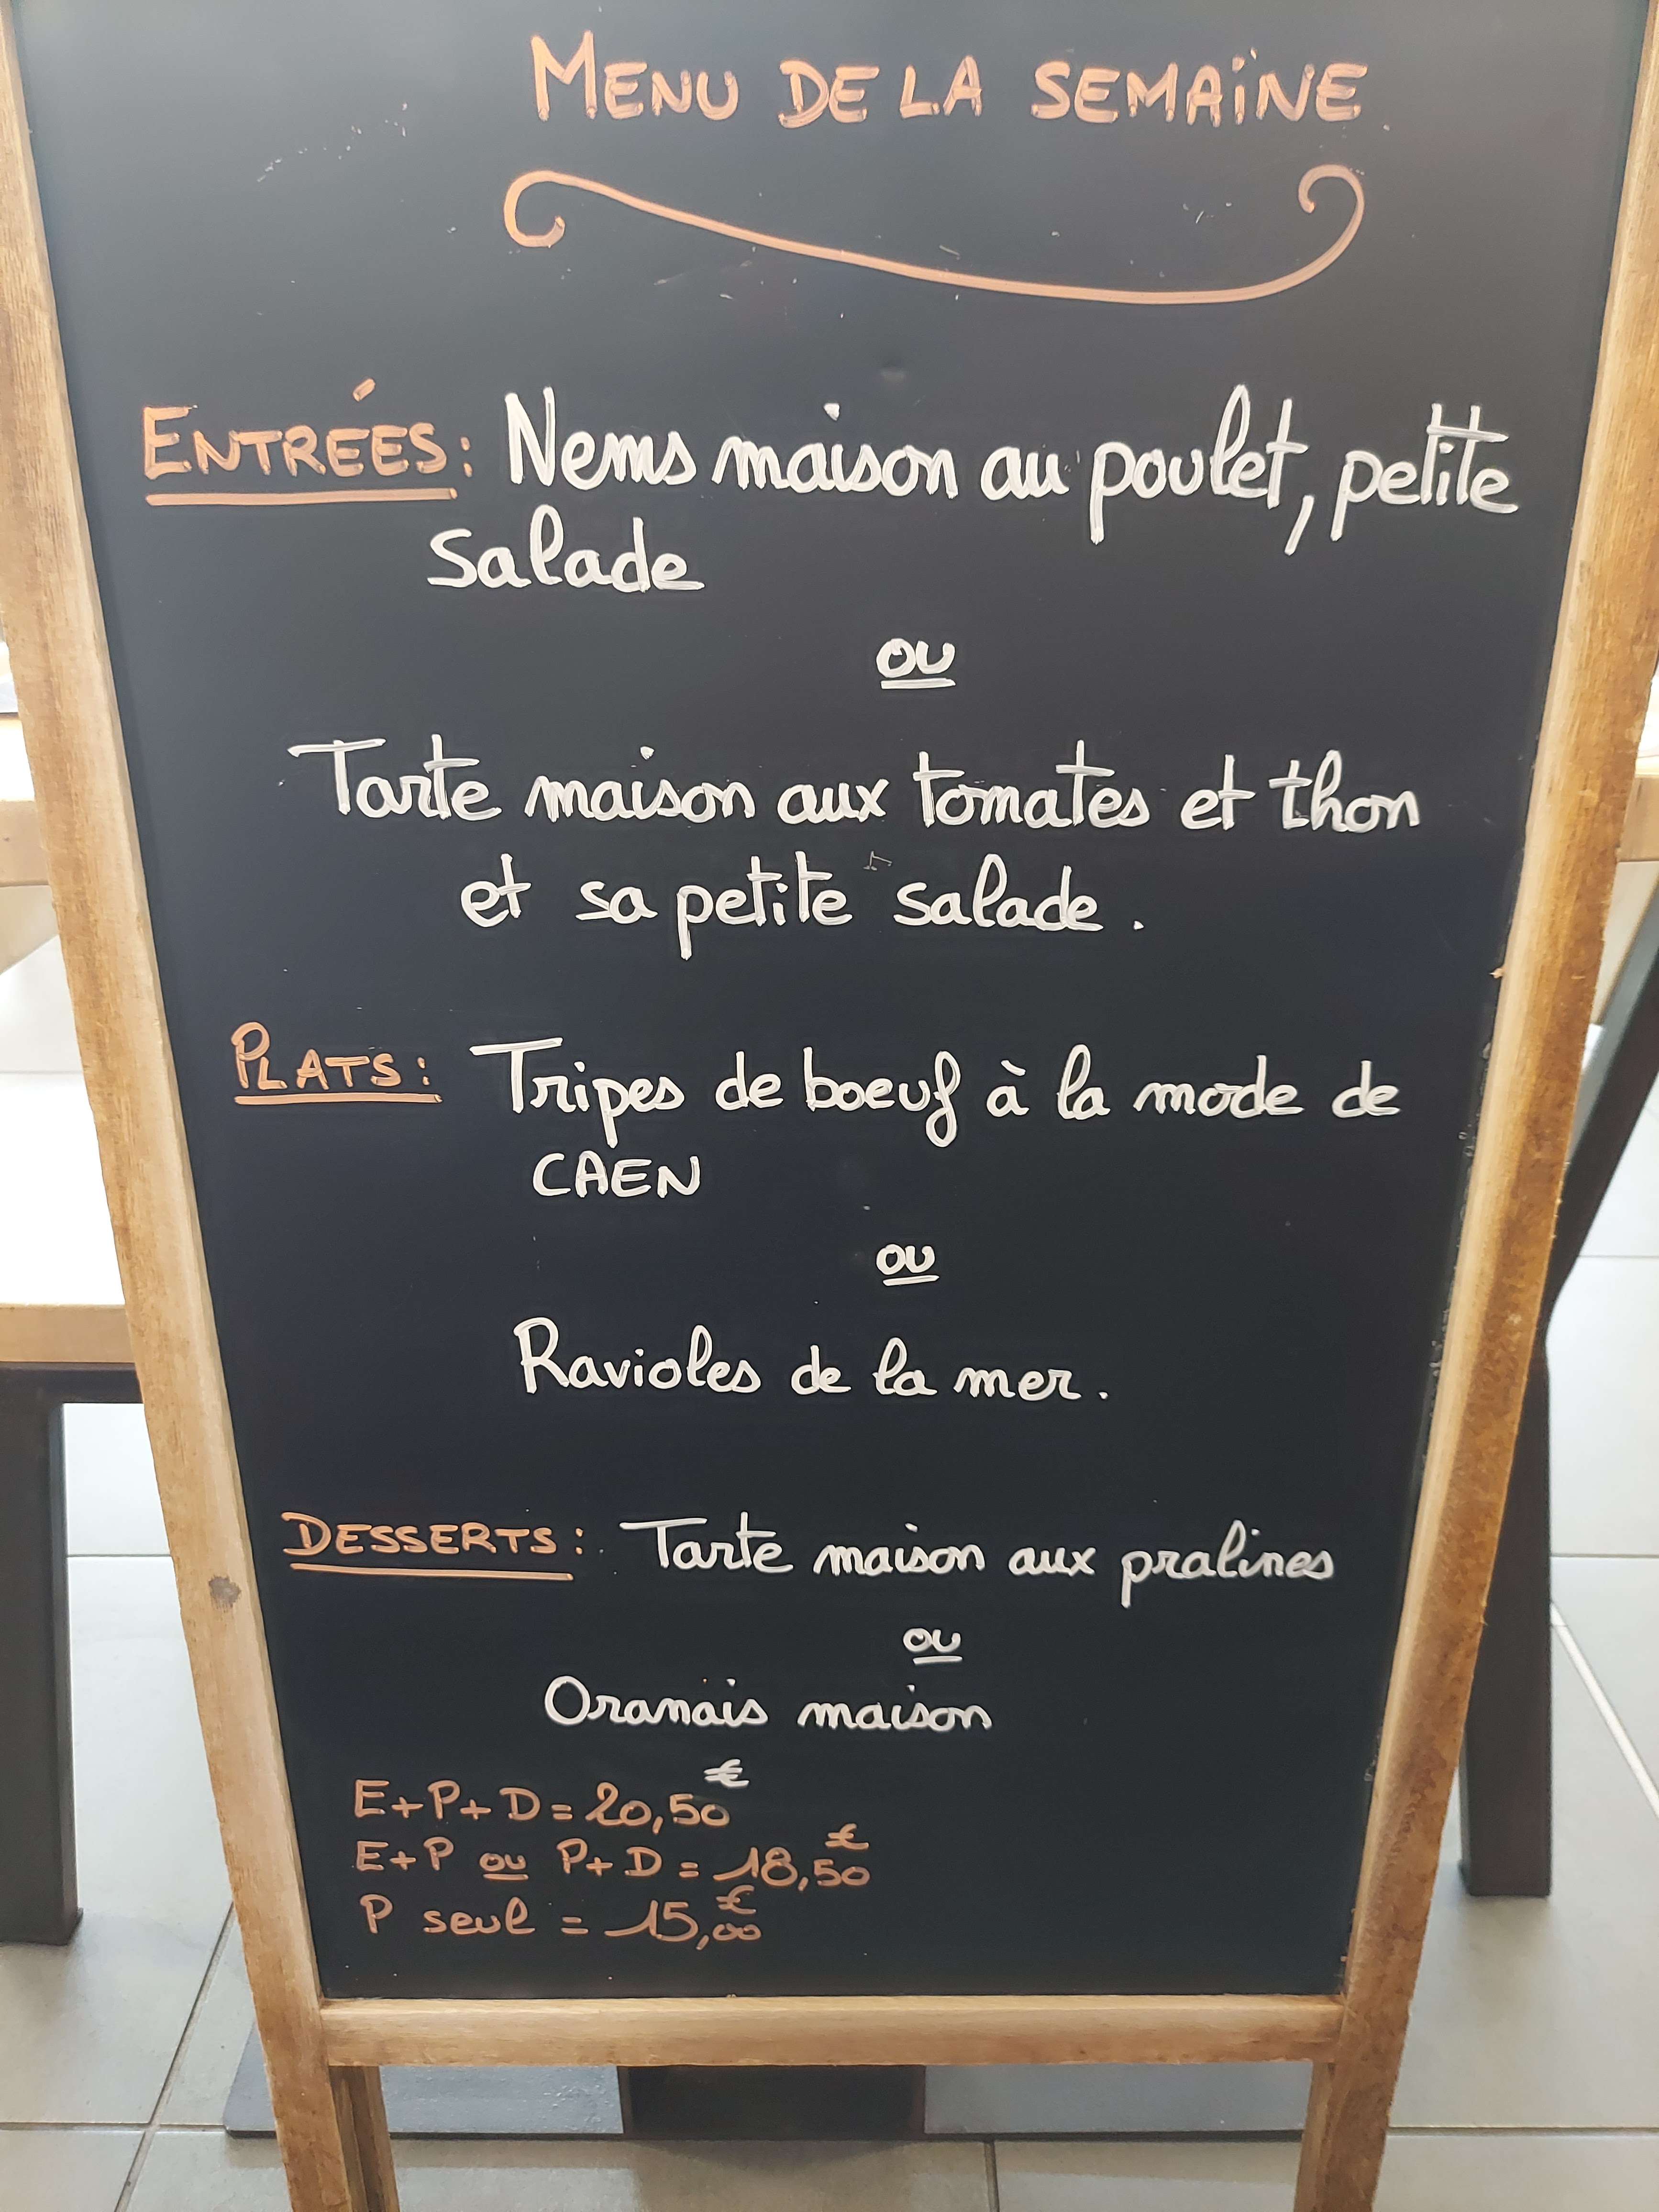 MENU DE LA SEMAINE
ENTRÉES: Nems maison au poulet, petite
salade
ou
Tarte maison aux tomates et thon
et sa petite salade.
PLATS: Tripes de boeuf à la mode de
CAEN
ou
Ravioles de la mer.
DESSERTS: Tarte maison aux pralines
ou
Oranais maison
E+P+D = 20,50€
E+P ou P+D = 18,50€
P seul = 15,00€